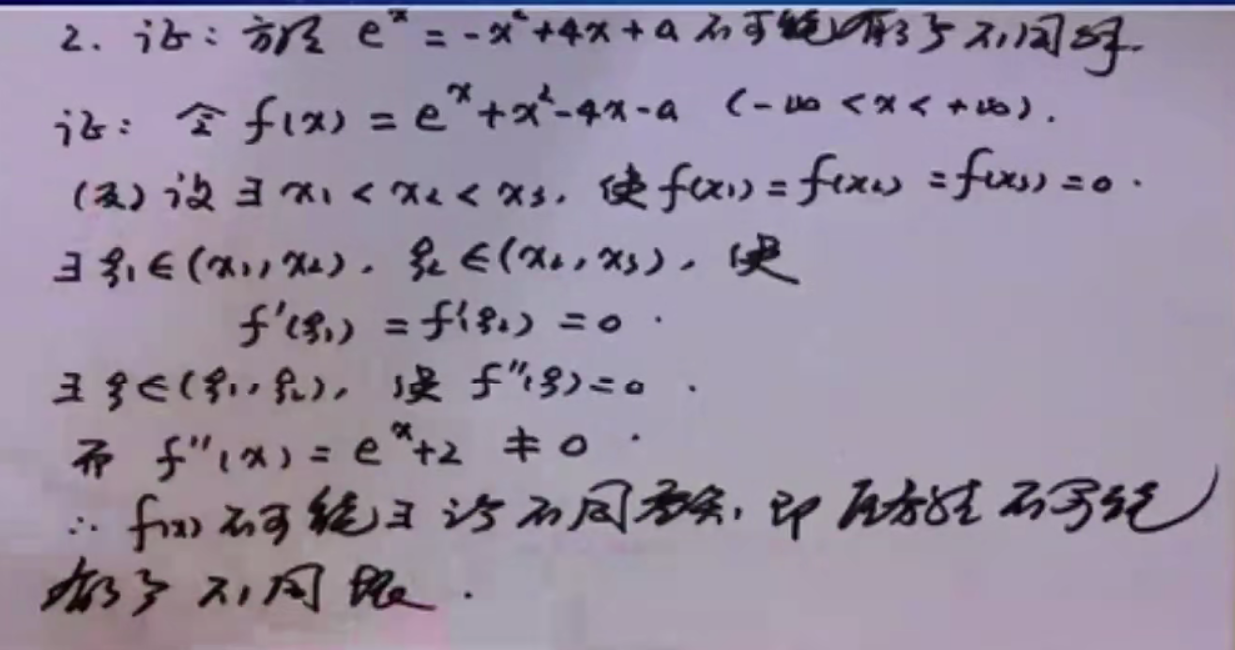 2. 证: 方程 eˣ = -x²+4x+a 不可能有3个不同的根.
证: 令 f(x) = eˣ+x²-4x-a (-∞ < x < +∞).
(反) 设 ∃ x₁ < x₂ < x₃, 使 f(x₁) = f(x₂) = f(x₃) = 0.
∃ ξ₁ ∈ (x₁, x₂), ξ₂ ∈ (x₂, x₃), 使
f'(ξ₁) = f'(ξ₂) = 0.
∃ ξ ∈ (ξ₁, ξ₂), 使 f''(ξ) = 0.
而 f''(x) = eˣ+2 ≠ 0.
∴ f(x) 不可能 3 个不同零点, 即 原方程 不可能
有3个 不同 根.